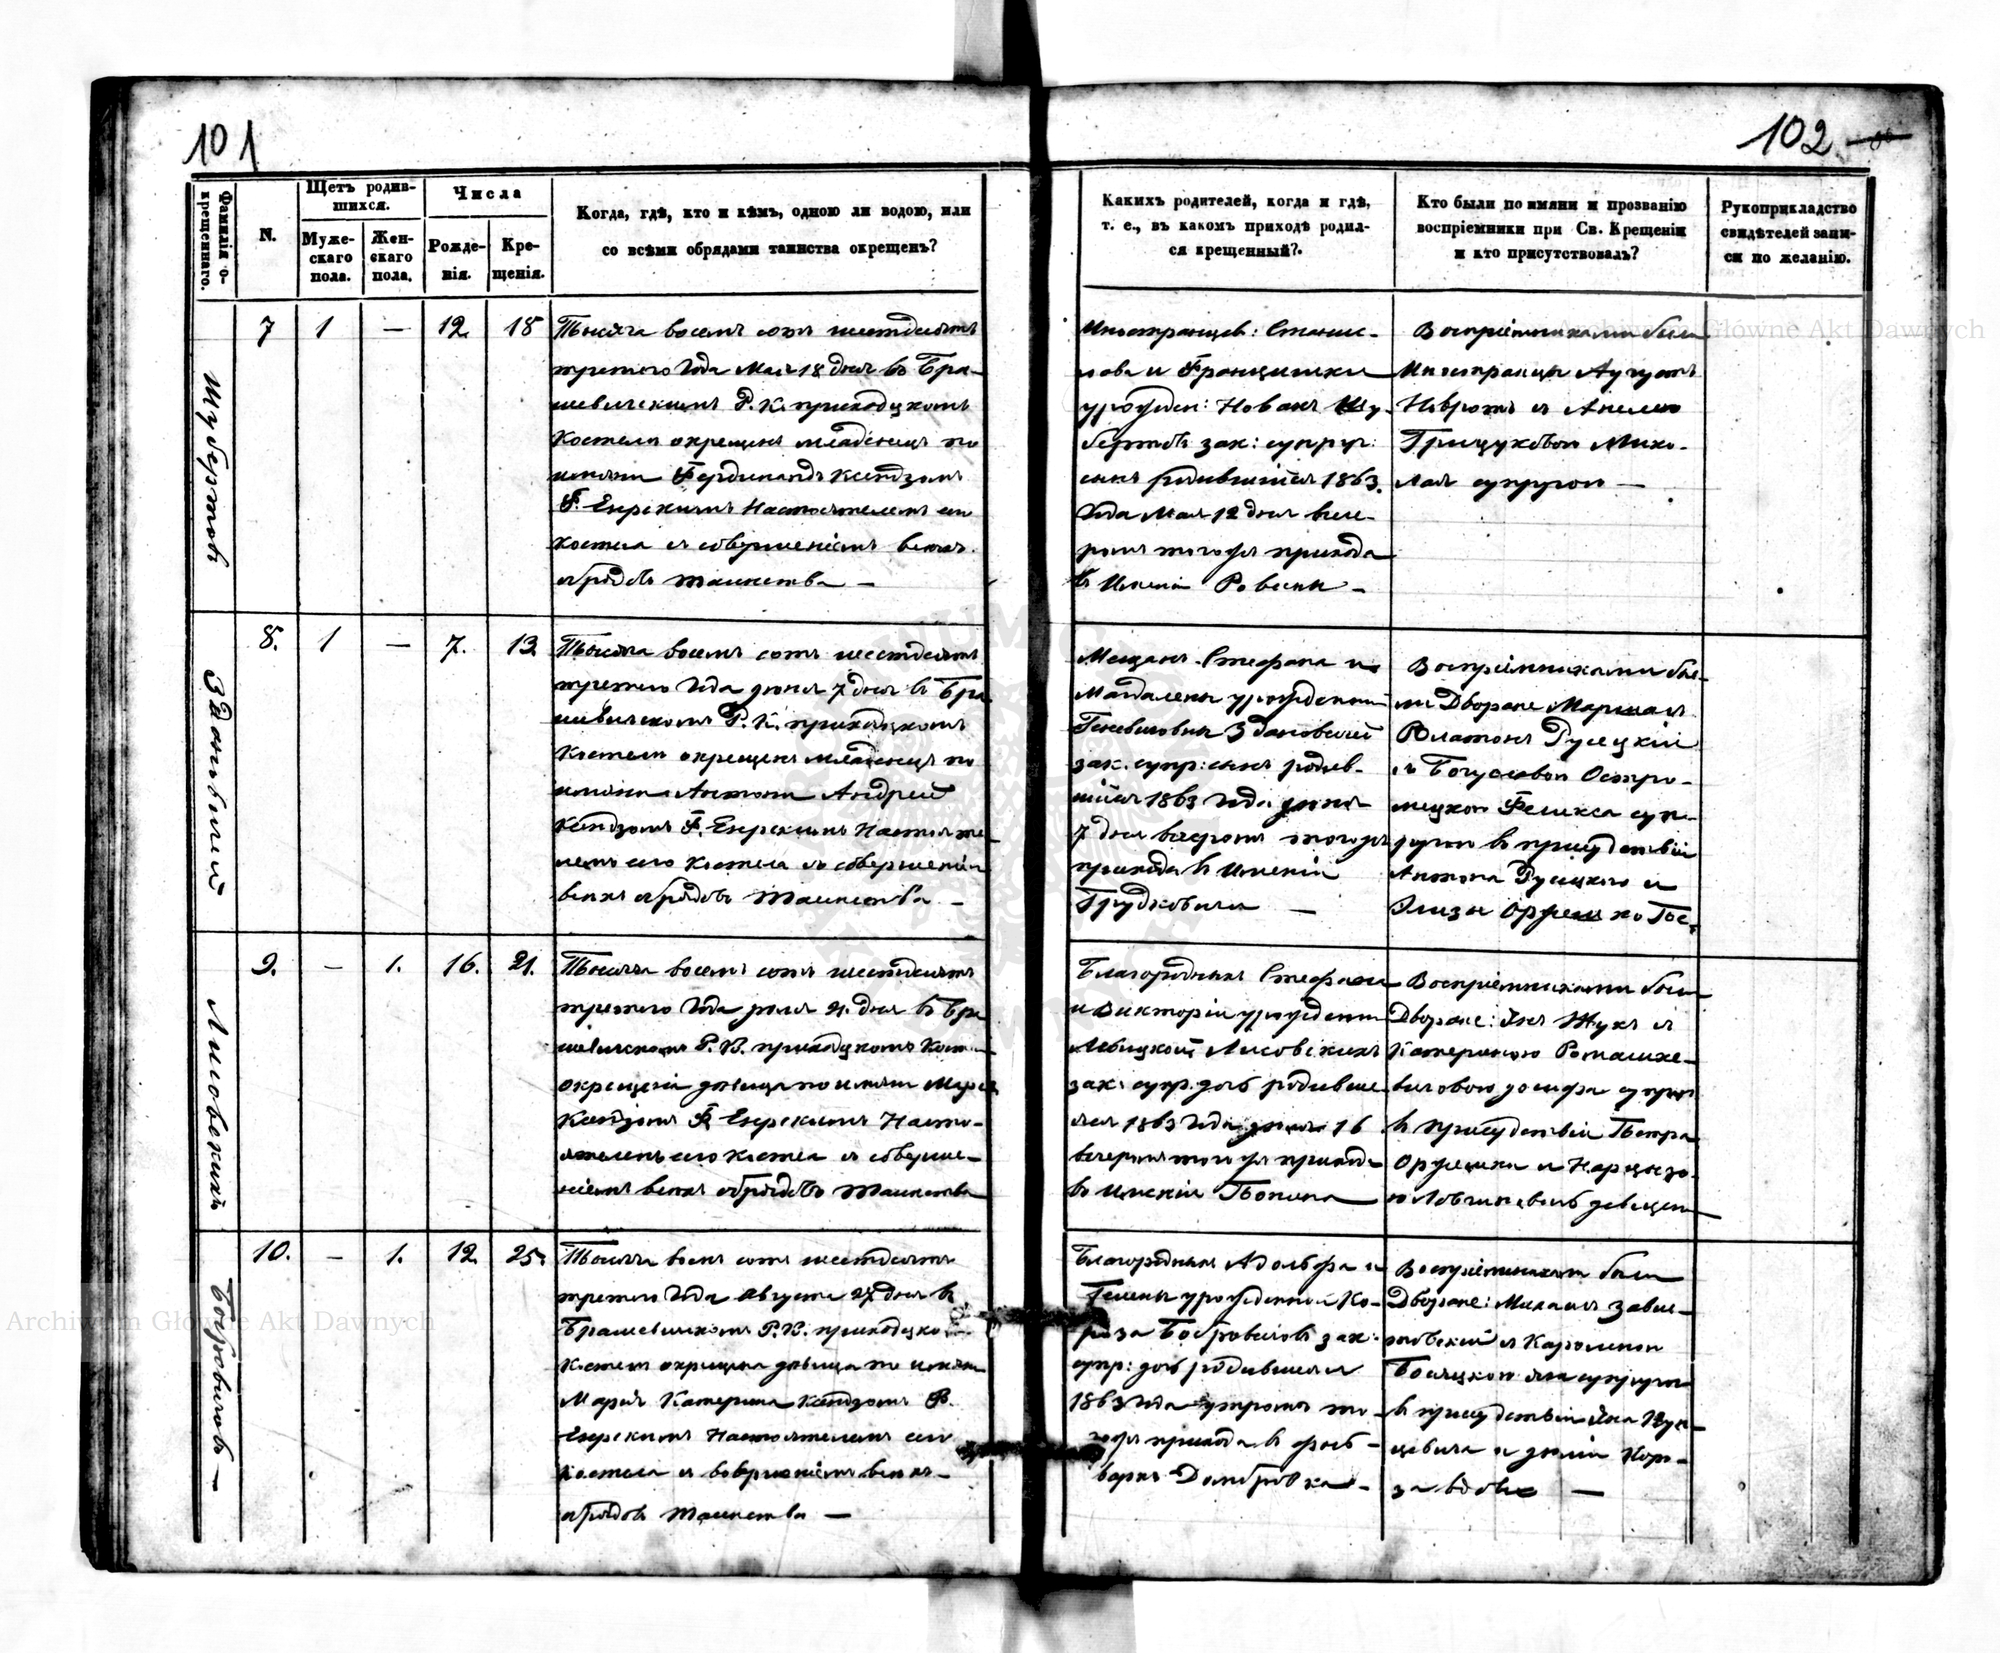 101
102
Фамилія о-
крещеннаго.
N.
Щетъ родив-
шихся.
Муже-
скаго
пола.
Жен-
скаго
пола.
Числа
Рожде-
нія.
Кре-
щенія.
Когда, гдѣ, кто и кѣмъ, одною ли водою, или
со всѣми обрядами таинства окрещенъ?
Каких​ъ родителей, когда и гдѣ,
т. е., въ какомъ приходѣ родил-
ся крещенный?
Кто были по имяни и прозванію
воспріемники при Св. Крещеніи
и кто присутствовалъ?
Рукоприкладство
свидѣтелей запи-
си по желанію.
Шубертов
7 1 — 12 18
Тысяча восемь сотъ шестдесятъ
третего Года Мая 18 дня въ Бра-
шевичскимъ Р. К. приходцкомъ
Костели окрещенъ младенецъ по
имяни Фердинандъ Ксендзомъ
Ф. Енрскимъ Настоятелемъ сего
костела съ совершеніемъ всехъ
обрядовъ таинства —
Иностранцев: Станис-
лава и Францишки
урожден: Новакъ Шу-
бертовъ зак: супруг:
сынъ родившійся 1863
Года Мая 12 дня вече-
ромъ тогожъ прихода
въ Имении Ровины —
Воспріемниками были
Иностранцы Августъ
Невротъ с Анелею
Грицуковой Мико-
лая супругою —
Здановичей
8. 1 — 7. 13
Тысяча восемь сотъ шестдесятъ
третего Года июня 7 дня въ Бра-
шевичскомъ Р. К. приходцкомъ
Костели окрещенъ младенецъ по
имяни Антони Андрей
Ксендзомъ Ф. Енрскимъ Настояте-
лемъ сего костела съ совершеніем
всехъ обрядовъ таинства —
Мещанъ Стефана и
Магдалены урожденной
Здановичей
зак. супр: сынъ родив-
шійся 1863 Года июня
7 дня вечеромъ тогожъ
прихода въ Имении
Грудковичи —
Воспріемниками бы-
ли Дворане Маршал
Платонъ Русецкій
съ Богуславой Остро-
мецкою Феликса суп-
ругою въ присудствіи
Антона Русецкого и
Элизы Оржешко
Лисовскихъ
9. — 1. 16. 21.
Тысяча восемь сотъ шестдесятъ
третего Года июля 21 дня въ Бра-
шевичскомъ Р. К. приходцкомъ Кост-
окрещена девица по имяни Марія
Ксендзомъ Ф. Енрскимъ Насто-
ятелемъ сего костела съ соверше-
ніемъ всехъ обрядовъ таинства
Благородныхъ Стефана
и Викторіи урожденной
Лисовскихъ
зак: супр. дочь родивша-
яся 1863 Года июня 16
вечеромъ тогожъ прихода
въ Имении
Воспріемниками были
Дворане: Янъ Жукъ съ
Катериною Ромашке-
вичовою Іосифа супруг
въ присудствіи Петра
Оржешки и Нарцызо-
девицею
Бобровичовъ —
10. — 1. 12 25.
Тысяча восемь сотъ шестдесятъ
третего Года Августа 27 дня въ
Брашевичскомъ Р. К. приходцкомъ
Костели окрещена девица по имяни
Марія Катерина Ксендзомъ Ф.
Енрскимъ Настоятелемъ сего
Костела съ совершеніемъ всехъ
обрядовъ таинства —
Благородныхъ Адольфа и
Гелены урожденной Ко-
роза Бобровичовъ зак:
супр: дочь родившаяся
1863 Года утромъ то-
гожъ прихода въ фоль-
варкъ Домбровка —
Воспріемниками были
Дворане: Михаилъ Завис-
товскій съ Каролиною
супругою
въ присудствіи Яна Кун-
цевича и Юліи Коро-
за вдовы —
Archiwum Główne Akt Dawnych
Archiwum Główne Akt Dawnych